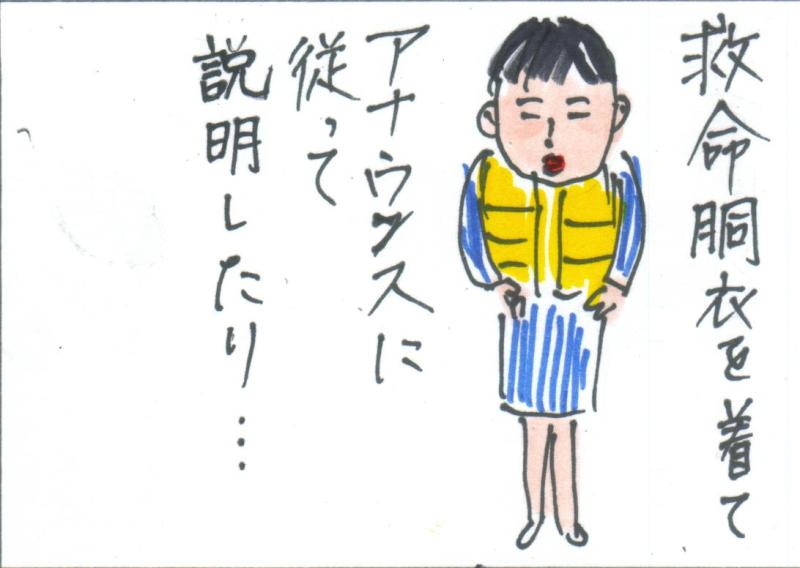 救命胴衣を着て
アナウンスに
従って
説明したり…